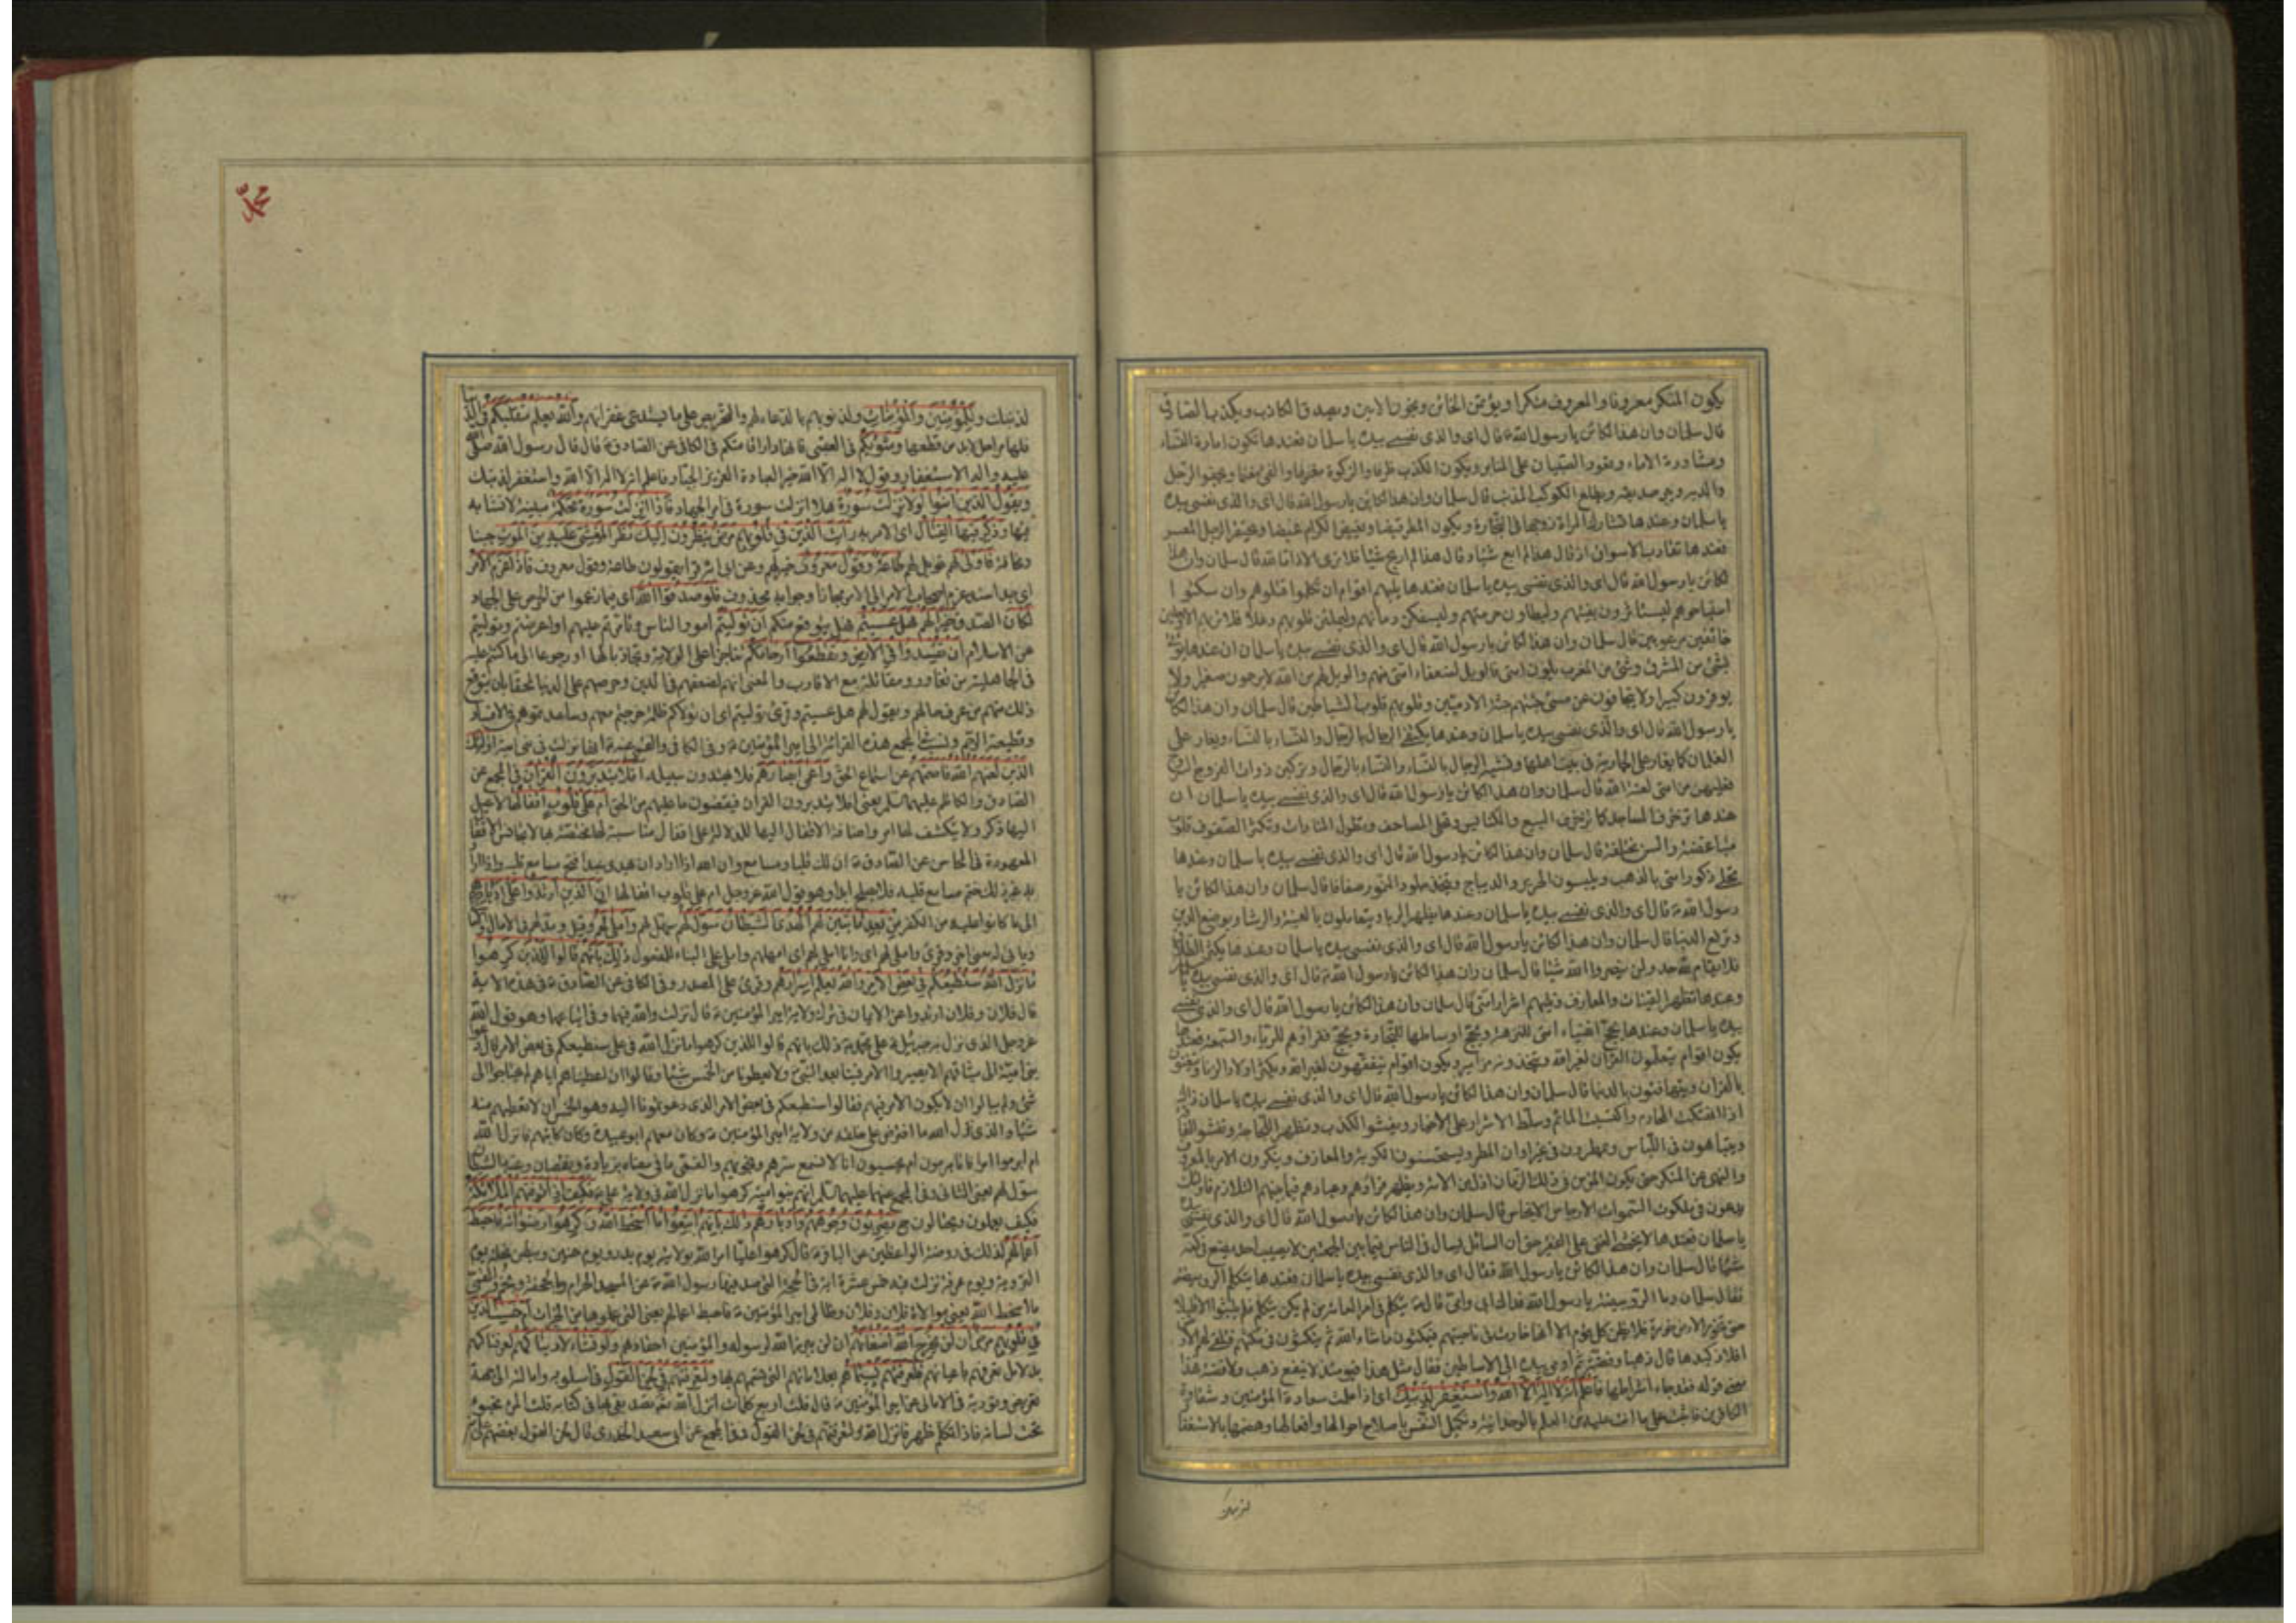 يكون المنكر معروفا والمعروف منكرا ويؤتمن الخائن ويخون الامين ويصدق الكاذب ويكذب الصادق
قال سلمان وان هذا لكائن يا رسول الله قال اى والذى نفسى بيده يا سلمان فعندها تكون امارة النساء
ومشاورة الاماء وقعود الصبيان على المنابر ويكون الكذب ظرفا والزكوة مغرما والفئ مغنما ويجفو الرجل
والديه ويبر صديقه ويطلع الكوكب المذنب قال سلمان وان هذا لكائن يا رسول الله قال اى والذى نفسى بيده
يا سلمان وعندها تشارك المراة زوجها فى التجارة ويكون المطر قيظا ويغيظ الكرام غيظا ويحتقر الرجل المعسر
فعندها تقارب الاسواق اذ قال هذا لم ابع شيئا وقال هذا لم اربح شيئا فلا ترى الا ذاما لله قال سلمان وان هذا
لكائن يا رسول الله قال اى والذى نفسى بيده يا سلمان فعندها يليهم اقوام ان تكلموا قتلوهم وان سكتوا ا
استباحوهم ليستاثرون بفيئهم وليطاون حرمتهم وليسفكن دمائهم وليملئن قلوبهم دغلا فلا تريهم الا وجلين
خائفين مرعوبين قال سلمان وان هذا لكائن يا رسول الله قال اى والذى نفسى بيده يا سلمان ان عندها يؤتى
بشئ من المشرق وشئ من المغرب يلون امتى فالويل لضعفاء امتى منهم والويل لهم من الله لا يرحمون صغيرا ولا
يوقرون كبيرا ولا يتجافون عن مسئ جثتهم جثة الادميين وقلوبهم قلوب الشياطين قال سلمان وان هذا لكائن
يا رسول الله قال اى والذى نفسى بيده يا سلمان وعندها يكتفى الرجال بالرجال والنساء بالنساء ويغار على
الغلمان كما يغار على الجارية فى بيت اهلها وتشبه الرجال بالنساء والنساء بالرجال وتركبن ذوات الفروج السروج
فعليهن من امتى لعنة الله قال سلمان وان هذا لكائن يا رسول الله قال اى والذى نفسى بيده يا سلمان ان
عندها تزخرف المساجد كما تزخرف البيع والكنايس وتحلى المصاحف وتطول المنارات وتكثر الصفوف قلوب
متباغضة والسن مختلفة قال سلمان وان هذا لكائن يا رسول الله قال اى والذى نفسى بيده يا سلمان وعندها
تحلى ذكور امتى بالذهب ويلبسون الحرير والديباج ويتخذون جلود النمور صفافا قال سلمان وان هذا لكائن يا
رسول الله قال اى والذى نفسى بيده يا سلمان وعندها يظهر الربا ويتعاملون بالعينة والرشا ويوضع الدين
وترفع الدنيا قال سلمان وان هذا لكائن يا رسول الله قال اى والذى نفسى بيده يا سلمان وعندها يكثر الطلاق
فلا يقام لله حد ولن يضروا الله شيئا قال سلمان وان هذا لكائن يا رسول الله قال اى والذى نفسى بيده يا
وعندها تظهر القينات والمعازف ويليهم اشرار امتى قال سلمان وان هذا لكائن يا رسول الله قال اى والذى نفسى
بيده يا سلمان وعندها يحج اغنياء امتى للنزهة ويحج اوساطها للتجارة ويحج فقراؤهم للرياء والسمعة فعندها
يكون اقوام يتعلمون القران لغير الله ويتخذونه مزامير ويكون اقوام يتفقهون لغير الله ويكثر اولاد الزنا ويتغنون
بالقران ويتهافتون بالدنيا قال سلمان وان هذا لكائن يا رسول الله قال اى والذى نفسى بيده يا سلمان ذاك
اذا انتهكت المحارم واكتسبت الماثم وسلط الاشرار على الاخيار ويفشو الكذب وتظهر اللجاجة وتفشو الفاقة
ويتباهون فى اللباس ويمطرون فى غير اوان المطر ويستحسنون الكوبة والمعازف وينكرون الامر بالمعروف
والنهى عن المنكر حتى يكون المؤمن فى ذلك الزمان اذل من الامة ويظهر قراؤهم وعبادهم فيما بينهم التلاوم فاولئك
يدعون فى ملكوت السموات الارجاس الانجاس قال سلمان وان هذا لكائن يا رسول الله قال اى والذى نفسى
يا سلمان فعندها لا يخشى الغنى على الفقير حتى ان السائل ليسال فى الناس فيما بين الجمعتين لا يصيب احدا يضع فى كفه
شيئا قال سلمان وان هذا لكائن يا رسول الله فقال اى والذى نفسى بيده يا سلمان فعندها يتكلم الرويبضة
فقال سلمان وما الرويبضة يا رسول الله فداك ابى وامى قال يتكلم فى امر العامة من لم يكن يتكلم فلم يلبثوا الا قليلا
حتى تخور الارض خورة فلا يظن كل قوم الا انها خارت فى ناحيتهم فيمكثون ما شاء الله ثم ينكثون فى مكثهم فتلقى لهم الارض
افلاذ كبدها قال ذهبا وفضة ثم اومى بيده الى الاساطين فقال مثل هذا فيومئذ لا ينفع ذهب ولا فضة فهذا
معنى قوله فقد جاء اشراطها فاعلم انه لا اله الا الله واستغفر لذنبك اى اذا علمت سعادة المؤمنين وشقاوة
الكافرين فاثبت على ما انت عليه من العلم بالوحدانية وتكميل النفس باصلاح احوالها وافعالها وهضمها بالاستغفار
محمد
لذنبك وللمؤمنين والمؤمنات ولذنوبهم بالدعاء لهم والتحريص على ما يستدعى غفرانهم والله يعلم متقلبكم فى الدنيا
فانها مراحل لا بد من قطعها ومثويكم فى العقبى فانها دار اقامتكم فى الكافى عن الصادق قال قال رسول الله صلى الله
عليه واله الاستغفار وقول لا اله الا الله خير العبادة قال الله العزيز الجبار فاعلم انه لا اله الا الله واستغفر لذنبك
ويقول الذين امنوا لولا نزلت سورة هلا نزلت سورة فى امر الجهاد فاذا انزلت سورة محكمة مبينة لا تشابه
فيها وذكر فيها القتال اى الامر به رايت الذين فى قلوبهم مرض ينظرون اليك نظر المغشى عليه من الموت جبنا
ومخافة فاولى لهم فويل لهم طاعة وقول معروف خير لهم وعن ابى انه قرا يقولون طاعة وقول معروف فاذا عزم الامر
اى جد اسند عزم اصحاب الامر الى الامر مجازا وجوابه محذوف فلو صدقوا الله اى فيما زعموا من الحرص على الجهاد
لكان الصدق خيرا لهم فهل عسيتم فهل يتوقع منكم ان توليتم امور الناس وتامرتم عليهم او اعرضتم وتوليتم
عن الاسلام ان تفسدوا فى الارض وتقطعوا ارحامكم تناجزا على الولاية وتجاذبا لها او رجوعا الى ما كنتم عليه
فى الجاهلية من تغاور ومقاتلة مع الاقارب والمعنى انهم لضعفهم فى الدين وحرصهم على الدنيا احقاء بان يتوقع
ذلك منهم من عرف حالهم ويقول لهم هل عسيتم وقرئ توليتم اى ان تولاكم ظلمة خرجتم معهم وساعدتموهم فى الافساد
وقطيعة الرحم ونسب فى المجمع هذه القرائة الى امير المؤمنين وفى الكافى والقمى عنه انها نزلت فى بنى امية اولئك
الذين لعنهم الله فاصمهم عن استماع الحق واعمى ابصارهم فلا يهتدون سبيله افلا يتدبرون القران فى المجمع عن
الصادق والكاظم عليهما السلم يعنى افلا يتدبرون القران فيقضون ما عليهم من الحق ام على قلوب اقفالها لا يصل
اليها ذكر ولا يكشف لها امر واضافة الاقفال اليها للدلالة على اقفال مناسبة لها مختصة بها لا تجانس الاقفال
المعهودة فى المحاسن عن الصادق ان لك قلبا ومسامع وان الله اذا اراد ان يهدى عبدا فتح مسامع قلبه واذا اراد
به غير ذلك ختم مسامع قلبه فلا يصلح ابدا وهو قول الله عز وجل ام على قلوب اقفالها ان الذين ارتدوا على ادبارهم
الى ما كانوا عليه من الكفر من بعد ما تبين لهم الهدى الشيطان سول لهم سهل لهم واملى لهم وقيل ومد لهم فى الامال
وقرئ واملى لهم اى وانا املى لهم اى امهلهم واملى على البناء للمفعول ذلك بانهم قالوا للذين كرهوا
ما نزل الله سنطيعكم فى بعض الامر والله يعلم اسرارهم وقرئ على المصدر وفى الكافى عن الصادق فى هذه الاية
قال فلان وفلان ارتدوا عن الايمان فى ترك ولاية امير المؤمنين قال نزلت والله فيهما وفى اتباعهما وهو قول الله
عز وجل الذى نزل به جبرئيل على محمد ذلك بانهم قالوا للذين كرهوا ما نزل الله فى على سنطيعكم فى بعض الامر قال دعوا
بنى امية الى ميثاقهم الا يصيروا الامر فينا بعد النبى ولا يعطونا من الخمس شيئا وقالوا ان اعطيناهم اياهم لم يحتاجوا الى
شئ ولم يبالوا ان لا يكون الامر فيهم فقالوا سنطيعكم فى بعض الامر الذى دعوتمونا اليه وهو الخمس ان لا نعطيهم منه
شيئا والذى نزل الله ما افترض على خلقه من ولاية امير المؤمنين وكان معهم ابو عبيدة وكان كاتبهم فانزل الله
ام ابرموا امرا فانا مبرمون ام يحسبون انا لا نسمع سرهم ونجويهم والقمى ما فى معناه بزيادة ونقصان وعنه الشيطان
سول لهم يعنى الثانى وفى المجمع عنهما عليهما السلم انهم بنو امية كرهوا ما نزل الله فى ولاية على فكيف اذا توفتهم الملائكة
فكيف يعملون ويحتالون ح يضربون وجوههم وادبارهم ذلك بانهم اتبعوا ما اسخط الله وكرهوا رضوانه فاحبط
اعمالهم لذلك فى روضة الواعظين عن الباقر قال كرهوا عليا امر الله بولايته يوم بدر ويوم حنين وببطن نخلة ويوم
التروية ويوم عرفة نزلت فيه خمس عشرة اية فى الحجة التى صد فيها رسول الله عن المسجد الحرام وبالجحفة وبخم والقمى
ما اسخط الله يعنى موالاة فلان وفلان وظالمى امير المؤمنين فاحبط اعمالهم يعنى التى عملوها من الخيرات ام حسب الذين
فى قلوبهم مرض ان لن يخرج الله اضغانهم ان لن يبرز الله لرسوله والمؤمنين احقادهم ولو نشاء لاريناكهم لعرفناكهم
بدلائل تعرفهم باعيانهم فلعرفتهم بسيماهم بعلاماتهم التى نسمهم بها ولتعرفنهم فى لحن القول فى اسلوبه وامالته الى جهة
تعريض وتورية فى الامالى عن امير المؤمنين قال قلت اربع كلمات انزل الله تصديقى بها فى كتابه قلت المرء مخبوء
تحت لسانه فاذا تكلم ظهر فانزل الله ولتعرفنهم فى لحن القول وفى المجمع عن ابى سعيد الخدرى قال لحن القول بغضهم على